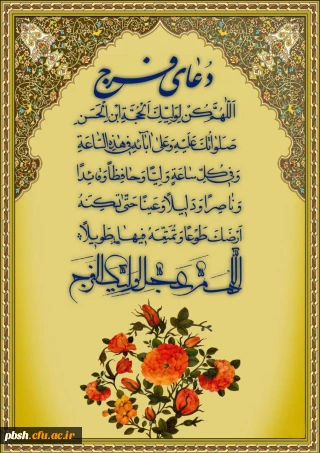 دُعای فرج
اَللّهُمَّ کُنْ لِوَلِیِّکَ الْحُجَّةِ ابْنِ الْحَسَنِ
صَلَواتُکَ عَلَیْهِ وَعَلی آبائِهِ فی هذِهِ السّاعَةِ
وَفی کُلِّ ساعَةٍ وَلِیّاً وَحافِظاً وَقائِداً
وَناصِراً وَدَلیلاً وَعَیْناً حَتّی تُسْکِنَهُ
اَرْضَکَ طَوْعاً وَتُمَتِّعَهُ فیها طَویلاً
اللّهم عجل لولیک الفرج
pbsh.cfu.ac.ir